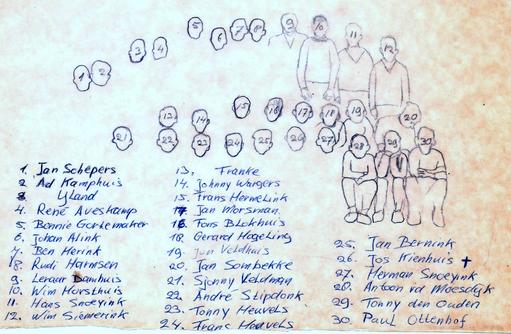 5
6
7
8
9
10
11
12
3
4
1
2
13
14
15
16
17
18
19
20
21
22
23
24
25
26
27
28
29
30
1. Jan Schepers
2 Ad Kamphuis
3 IJland
4. René Aveskamp
5. Bennie Gorkemaker
6. Johan Alink
7. Ben Herink
8. Rudi Harmsen
9. Leraar Damhuis
10. Wim Horsthuis
11. Hans Snoeyink
12. Wim Siemerink
13. Franke
14. Johnny Wargers
15. Frans Hermelink
17 Jan Morsman
16 Fons Blokhuis
18 Gerard Hageling
19. Jan Veldhuis
20 Jan Sombekke
21. Sjonny Veldman
22 André Stipdonk
23. Tonny Heuvels
24. Frans Heuvels
25. Jan Bernink
26. Jos Kienhuis †
27. Herman Snoeyink
28. Antoon vd Maesdijk
29. Tonny den Ouden
30. Paul Ottenhof